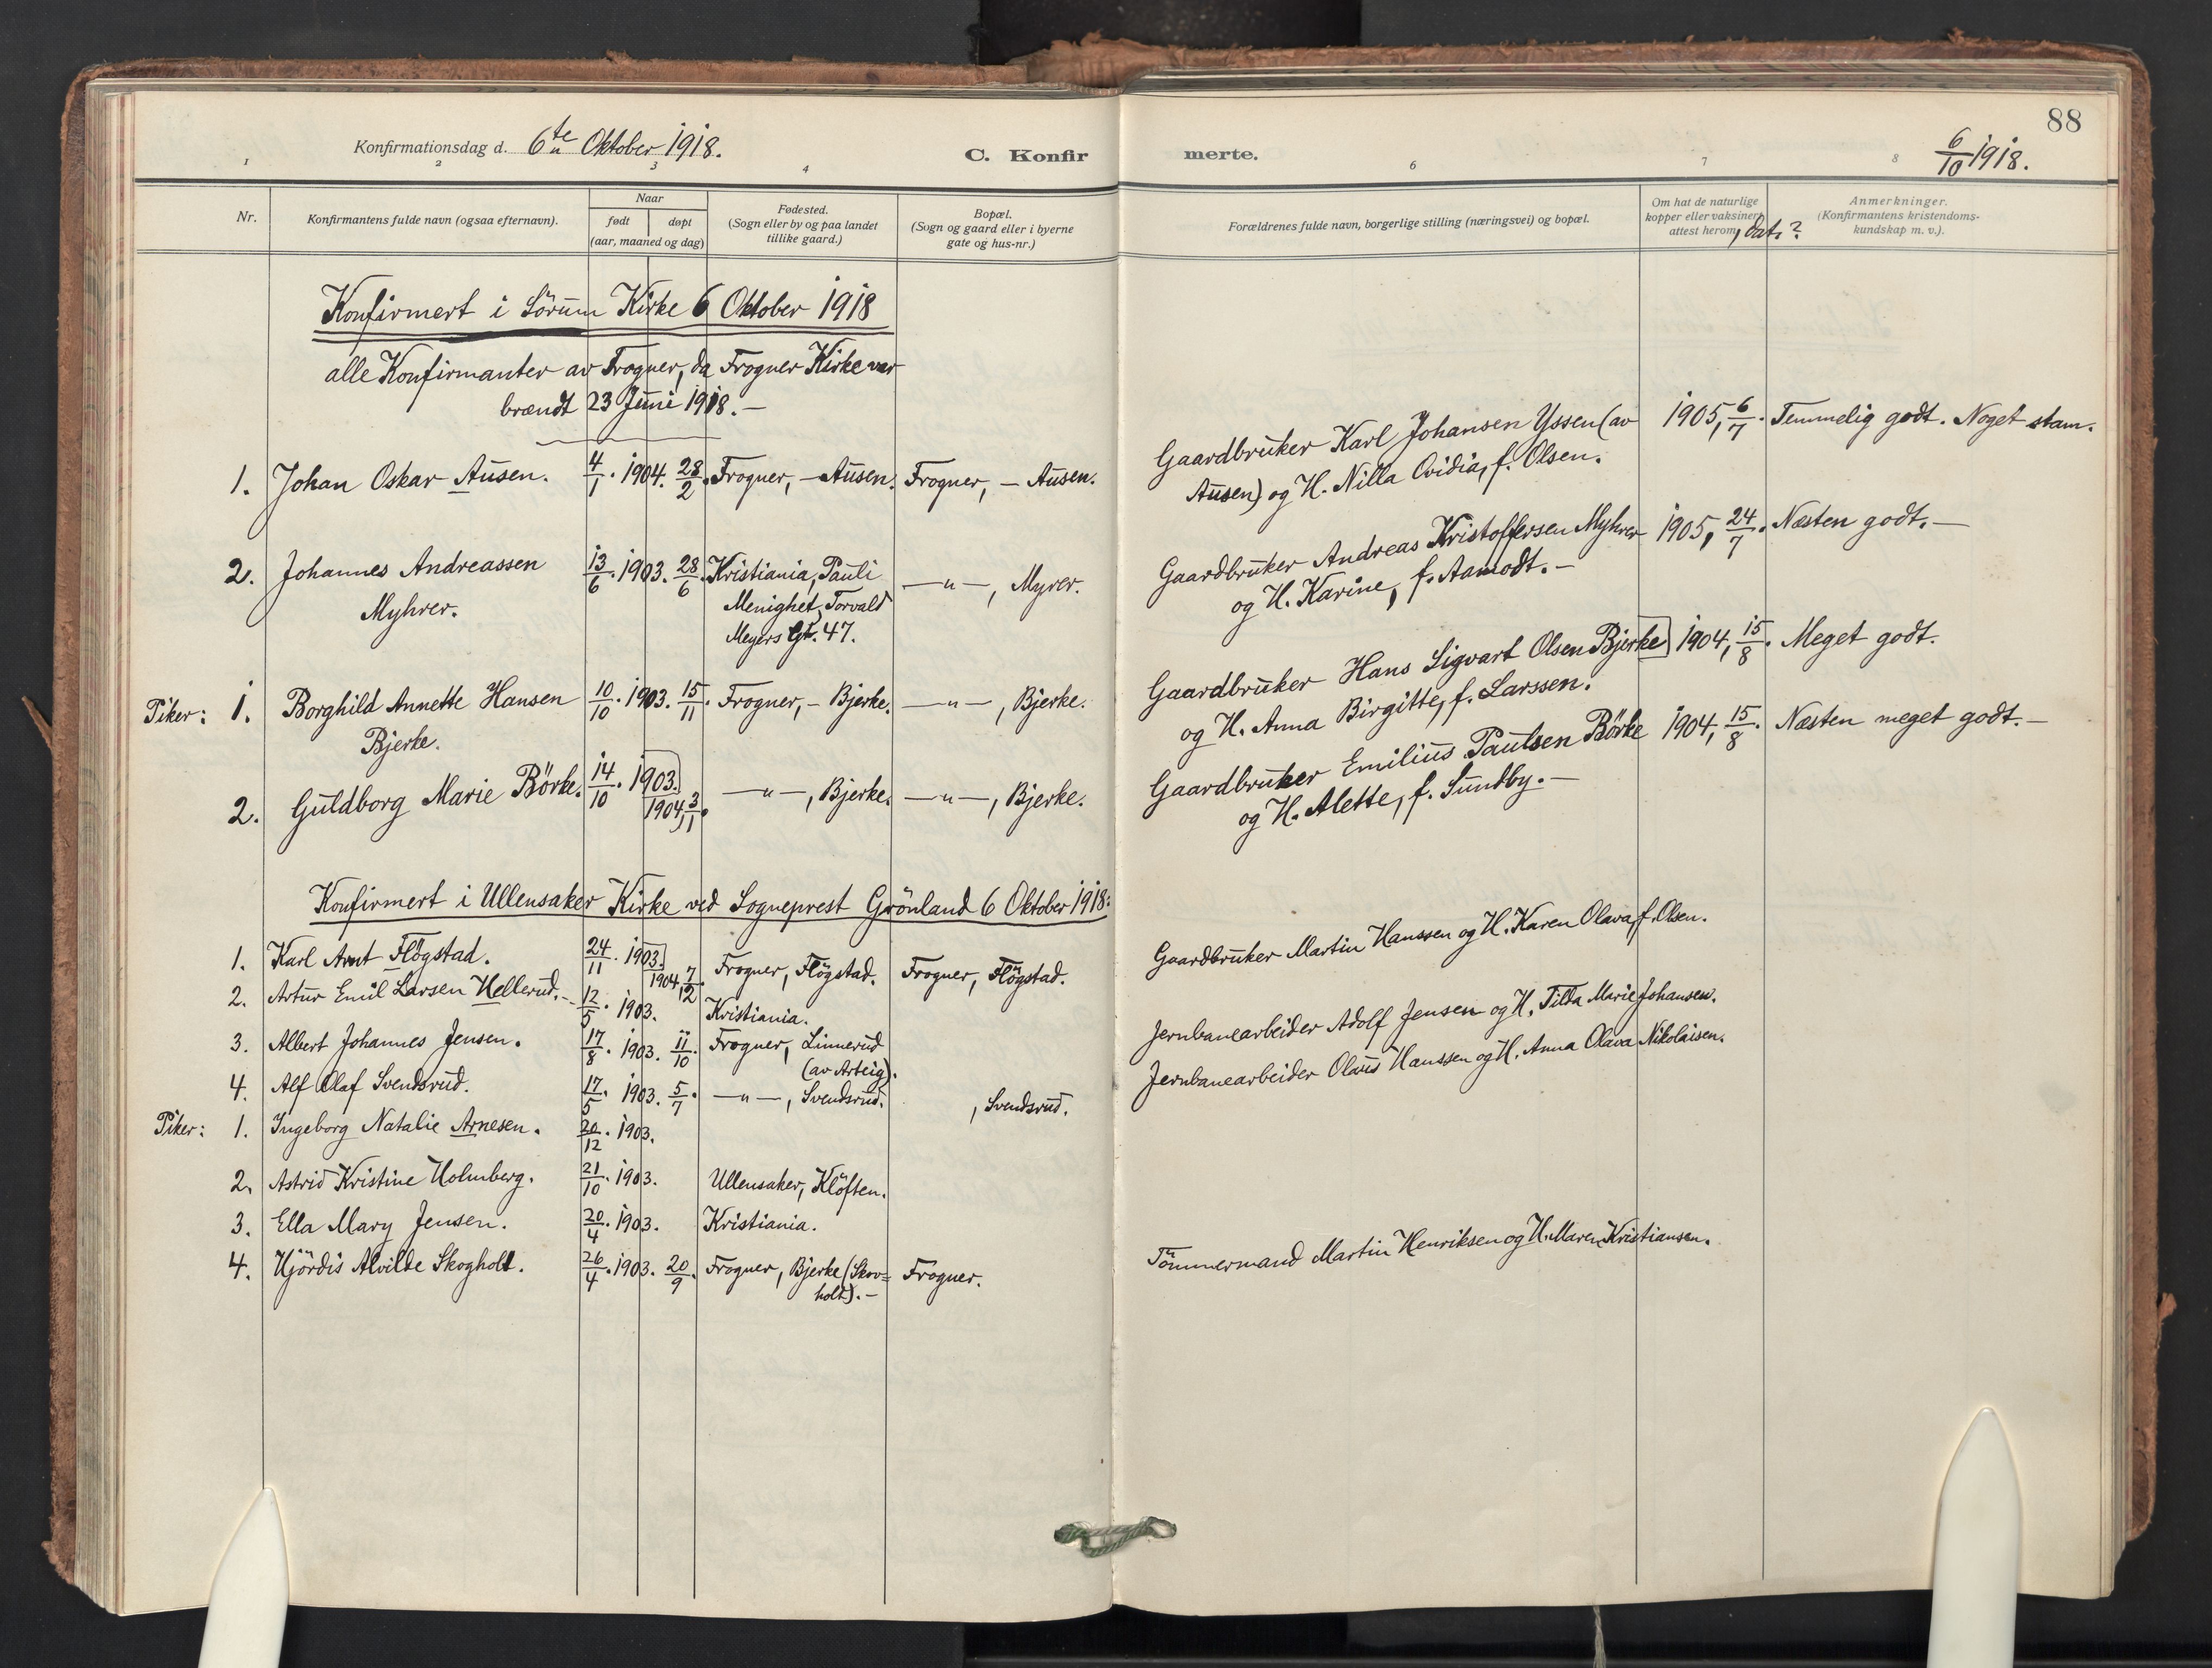 88
Konfirmationsdag d. 6te Oktober 1918.
C. Konfirmerte.
6/10 1918.
1 2 3 4 6 7 8
Nr.
Konfirmantens fulde navn (ogsaa efternavn).
Naar
født døpt
(aar, maaned og dag)
Fødested.
(Sogn eller by og paa landet
tillike gaard.)
Bopæl.
(Sogn og gaard eller i byerne
gate og hus-nr.)
Forældrenes fulde navn, borgerlige stilling (næringsvei) og bopæl.
Om hat de naturlige
kopper eller vaksinert,
attest herom, dat.?
Anmerkninger.
(Konfirmantens kristendoms-
kundskap m. v.).
Konfirmert i Sörum Kirke 6 Oktober 1918
alle Konfirmanter av Frogner, da Frogner Kirke var
brændt 23 Juni 1918. —
1. Johan Oskar Ausen. 4/1. 1904. 28/2. Frogner, — Ausen. Frogner, — Ausen. Gaardbruker Karl Johansen Yssen (av 1905, 6/7. Temmelig godt. Noget stam.
Ausen) og H. Nilla Ovidia, f. Olsen.
2. Johannes Andreassen 13/6. 1903. 28/6. Kristiania, Pauli —"—, Myrer. Gaardbruker Andreas Kristoffersen Myhrer 1905, 24/7. Næsten godt. —
Myhrer. Menighet, Torvald og H. Karine, f. Aamodt. —
Meyers Gt. 47.
Piker: 1. Borghild Annette Hansen 10/10. 1903. 15/11. Frogner, — Bjerke. —"—, Bjerke. Gaardbruker Hans Sigvart Olsen Bjerke 1904, 15/8. Meget godt.
Bjerke. og H. Anna Birgitte, f. Larssen.
2. Guldborg Marie Börke. 14/10. 1903. 1904, 3/1. —"—, Bjerke. —"—, Bjerke. Gaardbruker Emilius Paulsen Börke 1904, 15/8. Næsten meget godt. —
og H. Alette, f. Sundby. —
Konfirmert i Ullensaker Kirke ved Sogneprest Grönland 6 Oktober 1918:
1. Karl Arnt Flögstad. 24/11. 1903. 1904, 7/2. Frogner, Flögstad. Frogner, Flögstad. Gaardbruker Martin Hanssen og H. Karen Olava, f. Olsen.
2. Artur Emil Larsen Hellerud. 12/5. 1903. Kristiania.
3. Albert Johannes Jensen. 17/8. 1903. 11/10. Frogner, Linnerud Jernbanearbeider Adolf Jensen og H. Tilda Marie Johansen.
(av Arteig).
4. Alf Olaf Svendsrud. 17/5. 1903. 5/7. —"—, Svendsrud. , Svendsrud. Jernbanearbeider Olaus Hanssen og H. Anna Olava Nikolaisen.
Piker: 1. Ingeborg Natalie Arnesen. 20/12. 1903.
2. Astrid Kristine Holmberg. 21/10. 1903. Ullensaker, Klöften.
3. Ella Mary Jensen. 20/4. 1903. Kristiania.
4. Hjördis Alvilde Skogholt. 26/4. 1903. 20/9. Frogner, Bjerke (Skov= Frogner. Tömmermand Martin Henriksen og H. Maren Kristiansen.
holt). —